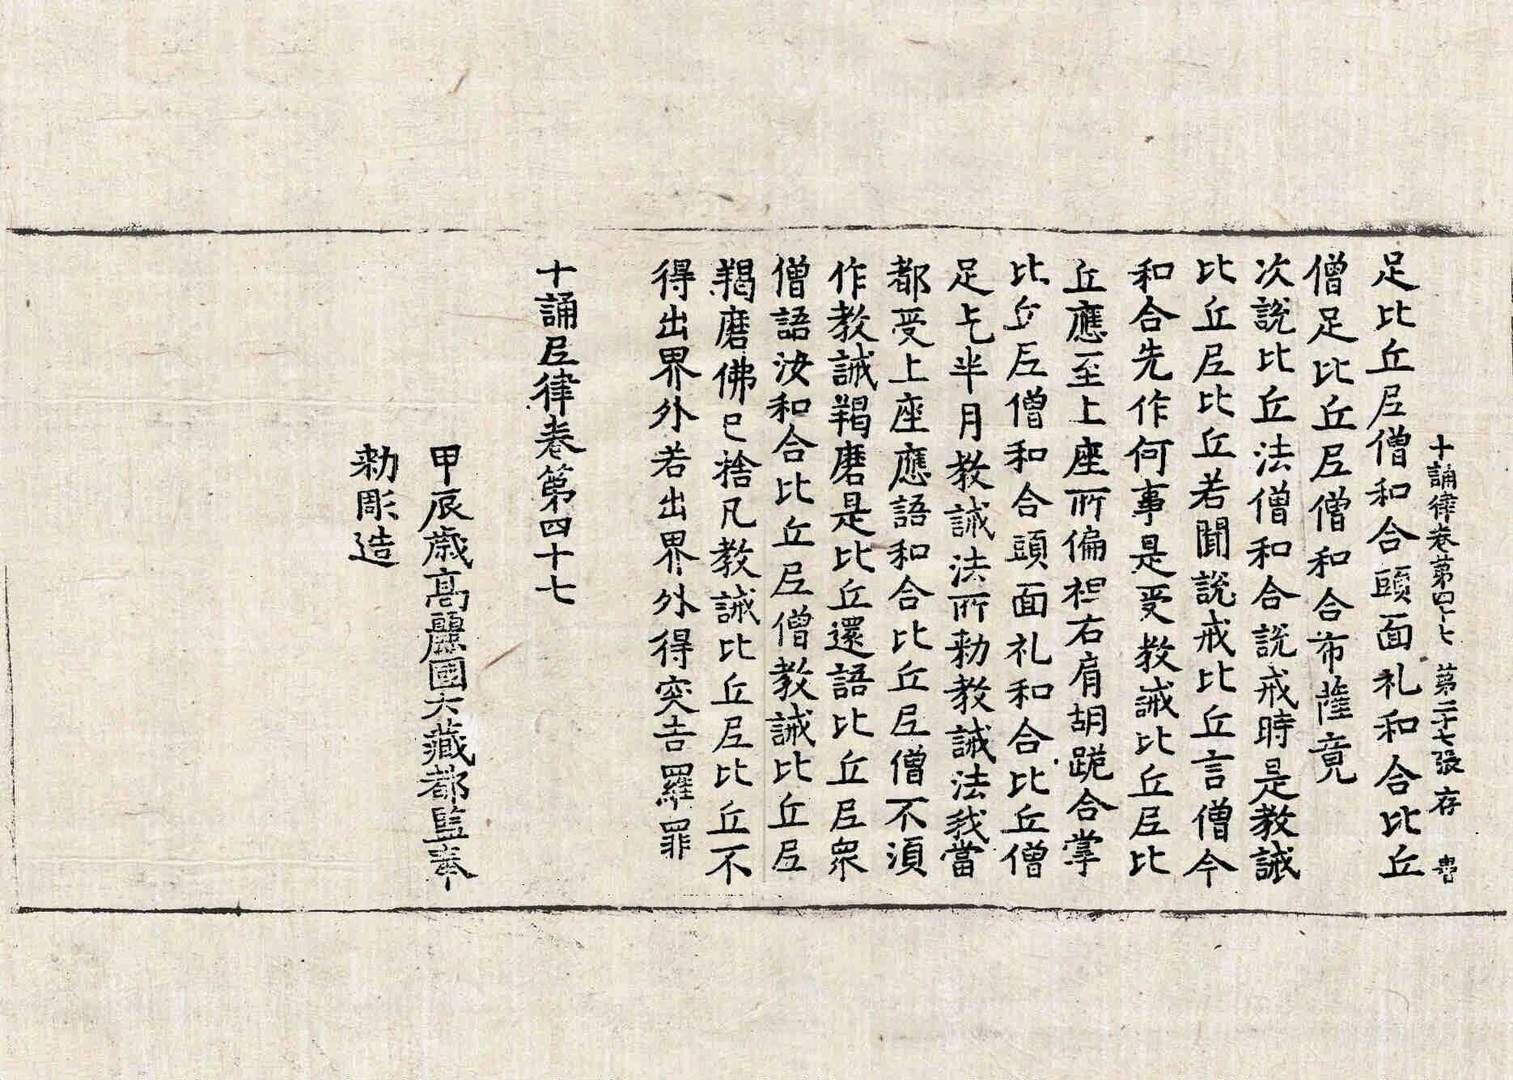 十誦律卷第四十七　第二十七張　存
足比丘尼僧和合頭面礼和合比丘
僧足比丘尼僧和合布薩竟
次說比丘法僧和合說戒時是教誡
比丘尼比丘若聞說戒比丘言僧今
和合先作何事是受教誡比丘尼比
丘應至上座所偏袒右肩胡跪合掌
比丘尼僧和合頭面礼和合比丘僧
足乞半月教誡法所勑教誡法我當
都受上座應語和合比丘尼僧不須
作教誡羯磨是比丘還語比丘尼衆
僧語汝和合比丘尼僧教誡比丘尼
羯磨佛已捨凡教誡比丘尼比丘不
得出界外若出界外得突吉羅罪
十誦尼律卷第四十七
甲辰歲高麗國大藏都監奉
勑彫造